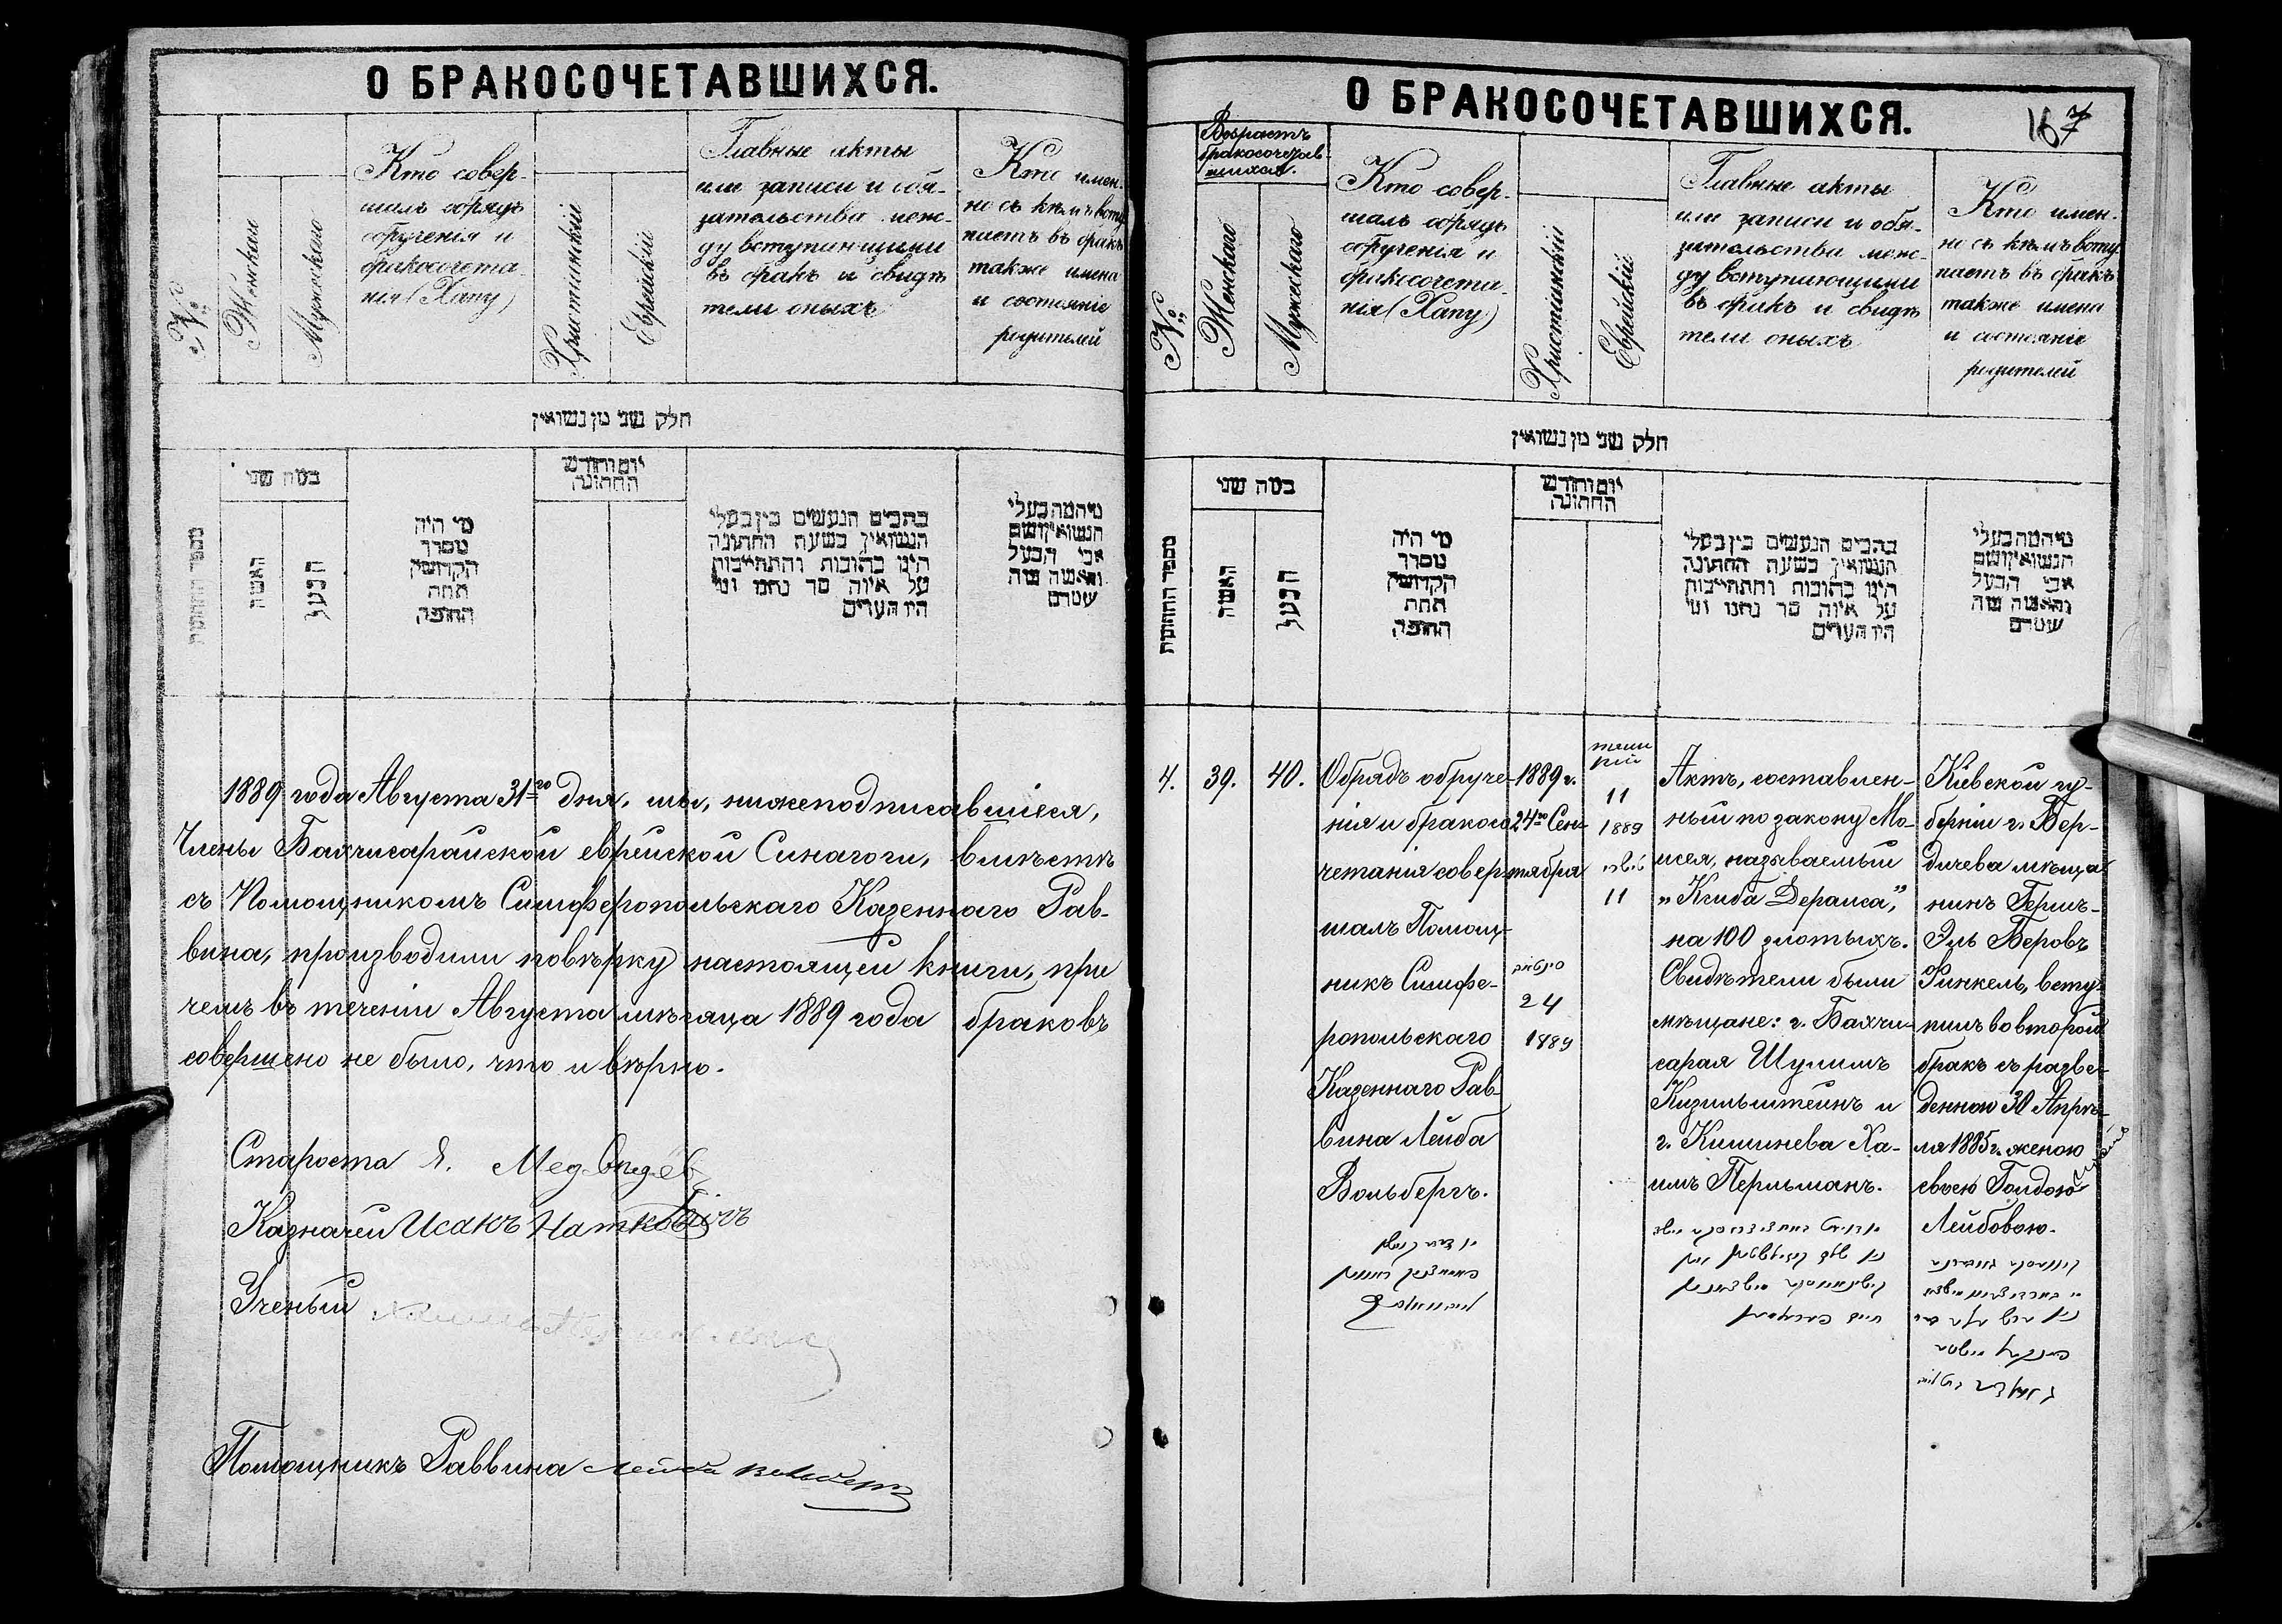 О БРАКОСОЧЕТАВШИХСЯ.
№
Женскаго
Мужескаго
Кто совер-
шалъ обрядъ
обрученія и
бракосочета-
нія (Хапу)
Христіанскій
Еврейскій
Главные акты
или записи и обя-
зательства меж-
ду вступающими
въ бракъ и свидѣ
тели оныхъ
Кто имен-
но съ кѣмъ всту
паетъ въ бракъ
также имена
и состояніе
родителей
חלק שני מן נשואין
מספר החתונות
כמה שני
האשה
הבעל
מי היה
מסדר
הקדושין
תחת
החופה
יום וחודש
החתונה
כתבים הנעשים בין בעלי
הנשואין בשעת החתונה
היינו כתובות והתחייבות
על איזה סך נתנו ומי
היו העדים
מי המה בעלי
הנשואין ושם
אבי הבעל
והאשה ומה
עטרם
1889 года Августа 31го дня, мы, нижеподписавшіеся,
Члены Бахчисарайской еврейской Синагоги, вмѣстѣ
съ Помощникомъ Симферопольскаго Казеннаго Рав-
вина, производили повѣрку настоящей книги, при
чемъ въ теченіи Августа мѣсяца 1889 года браковъ
совершено не было, что и вѣрно.
Староста Я. Медвѣдев
Казначей Исакъ Наткович
Ученый
Помощникъ Раввина Лейба Вольберг
О БРАКОСОЧЕТАВШИХСЯ.
167
№
Возрастъ
бракосочетав-
шихся.
Женскаго
Мужескаго
Кто совер-
шалъ обрядъ
обрученія и
бракосочета-
нія (Хапу)
Христіанскій
Еврейскій
Главные акты
или записи и обя-
зательства меж-
ду вступающими
въ бракъ и свидѣ
тели оныхъ
Кто имен-
но съ кѣмъ всту
паетъ въ бракъ
также имена
и состояніе
родителей
חלק שני מן נשואין
מספר החתונות
כמה שני
האשה
הבעל
מי היה
מסדר
הקדושין
תחת
החופה
יום וחודש
החתונה
כתבים הנעשים בין בעלי
הנשואין בשעת החתונה
היינו כתובות והתחייבות
על איזה סך נתנו ומי
היו העדים
מי המה בעלי
הנשואין ושם
אבי הבעל
והאשה ומה
עטרם
4.
39.
40.
Обрядъ обруче-
нія и бракосо
четанія совер-
шалъ Помощ-
никъ Симфе-
ропольскаго
Казеннаго Рав-
вина Лейба
Вольбергъ.
1889 г.
24го Сен-
тября
24
1889
11
1889
11
Актъ, составлен-
ный по закону Мо-
исея, называемый
„Ксиба Дераиса",
на 100 злотыхъ.
Свидѣтели были
мѣщане: г. Бахчи-
сарая Шулимъ
Кизильштейнъ и
г. Кишинева Ха-
имъ Перльманъ.
Кіевской гу-
берніи г. Бер-
дичева мѣща
нинъ Гершъ-
Эль Беровъ
Финкель, всту
пилъ во второй
бракъ съ разве-
денною 30 Апрѣ-
ля 1885 г. женою
своею Голдою
Лейбовою.